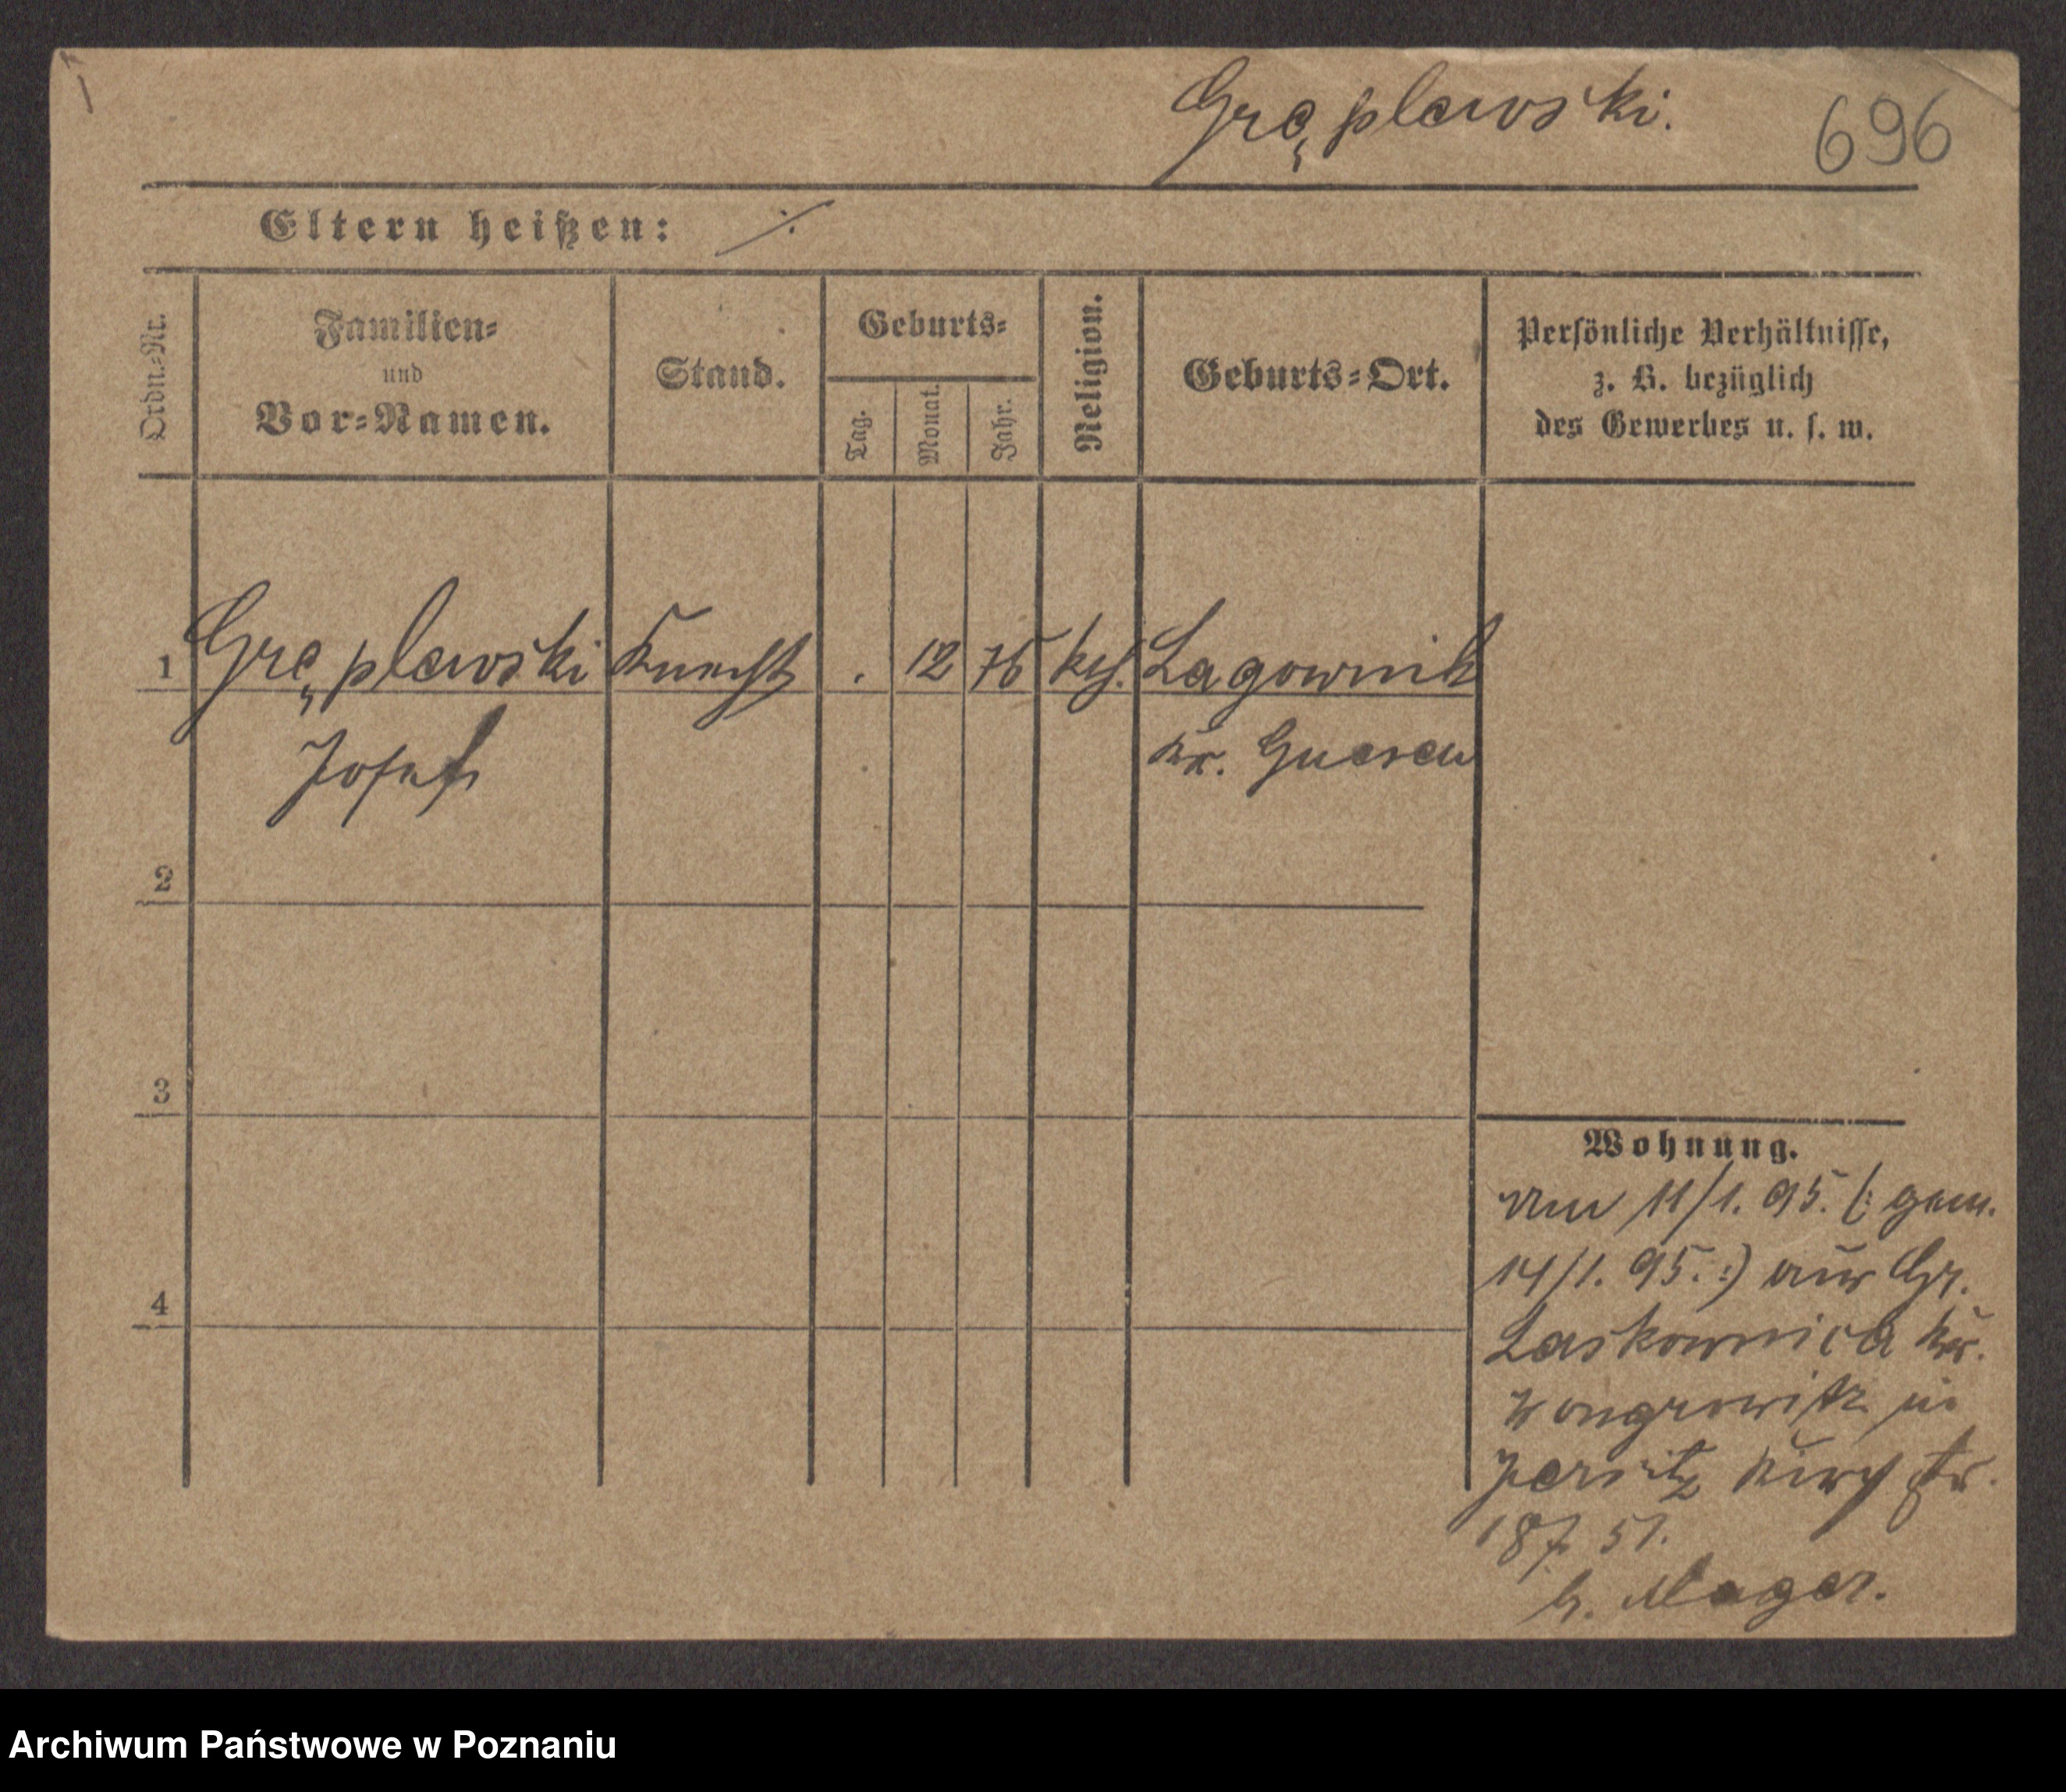 Gręplewski.
696
Eltern heißen: ⁒
Ordn.-Nr.
Familien-
und
Vor-Namen.
Stand.
Geburts-
Tag.
Monat.
Jahr.
Religion.
Geburts-Ort.
Persönliche Verhältnisse,
z. B. bezüglich
des Gewerbes u. s. w.
1 Gręplewski Knecht . 12 75 kth. Lagownik
Josef Kr. Gnesen
2
3
4
Wohnung.
Am 11/1. 95. (: gem.
14/1. 95. :) aus Gr.
Laskownica Kr.
Wongrowitz in
Jersitz Kirchstr.
51.
b. Mager.
Archiwum Państwowe w Poznaniu